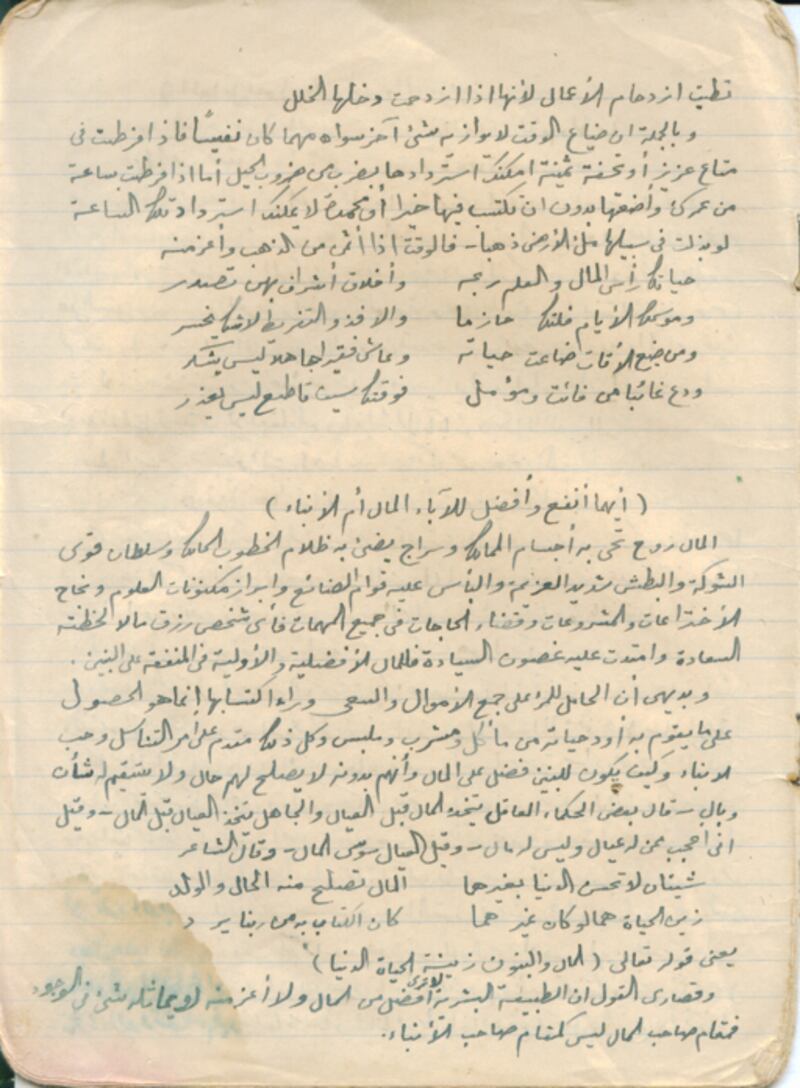 تطيق ازدحام الأعمال لأنها اذا ازدحمت دخلها الخلل
و بالجملة ان ضياع الوقت لا يوازيه شئ آخر سواه مهما كان نفيسًا فاذا فرطت فى
متاع عزيز أو تحفة ثمينة امكنك استردادها بضرب من ضروب الحيل أما اذا فرطت بساعة
من عمرك وأضعتها بدون ان تكتسب فيها خيرا أو محمدة لا يمكنك استرداد تلك الساعة
لو بذلت فى سبيلها ملئ الأرض ذهبا - فالوقت اذا أثمن من الذهب وأعز منه
حياتك رأس المال والعلم ربحه وأخلاق أشراف بهن تصدر
وموسمك الأيام فلتك حازما والا فذو التفريط لا شك يخسر
ومن ضيع الأوقات ضاعت حياته وعاش فقيرا جاهلا ليس يشكر
ودع غائبا من فائت ومؤمل فوقتك سيف قاطع ليس يعذر
( أيهما أنفع وأفضل للآباء المال أم الأبناء )
المال روح تحى به أجسام الممالك وسراج يضئ به ظلام الخطوب الحالك وسلطان قوى
الشوكة والبطش شديد العزيمة والبأس عليه قوام الصنائع وابراز مكنونات العلوم ونجاح
الأختراعات والمشروعات وقضاء الحاجات فى جميع المهمات فأى شخص رزق مالا لحظته
السعادة وامتدت عليه غصون السيادة فللمال الأفضلية والأولية فى المنفعة على البنين .
و بديهى أن الحامل للمرء على جمع الأموال والسعى وراء اكتسابها إنما هو الحصول
على ما يقوم به أود حياته من مأكل ومشرب وملبس وكل ذلك مقدم على أمر التناسل وحب
الابناء وكيف يكون للبنين فضل على المال وأنهم بدونه لا يصلح لهم حال ولا يستقيم له شأن
وبال - قال بعض الحكماء العاقل يتخذ المال قبل العيال والجاهل يتخذ العيال قبل المال - وقيل
انى أعجب ممن له عيال وليس له مال - وقيل العيال سوس المال - وقال الشاعر
شيئان لا تحسن الدنيا بغيرهما المال تصلح منه الحال والولد
زين الحياة هما لو كان غيرهما كان الكتاب به من ربنا يرد
يعنى قوله تعالى ( المال والبنون زينة الحياة الدنيا )
وقصارى القول ان الطبيعة البشرية لا ترى أفضل من المال ولا أعز منه او يماثله شئ فى الوجود
فمقام صاحب المال ليس كمقام صاحب الأبناء .